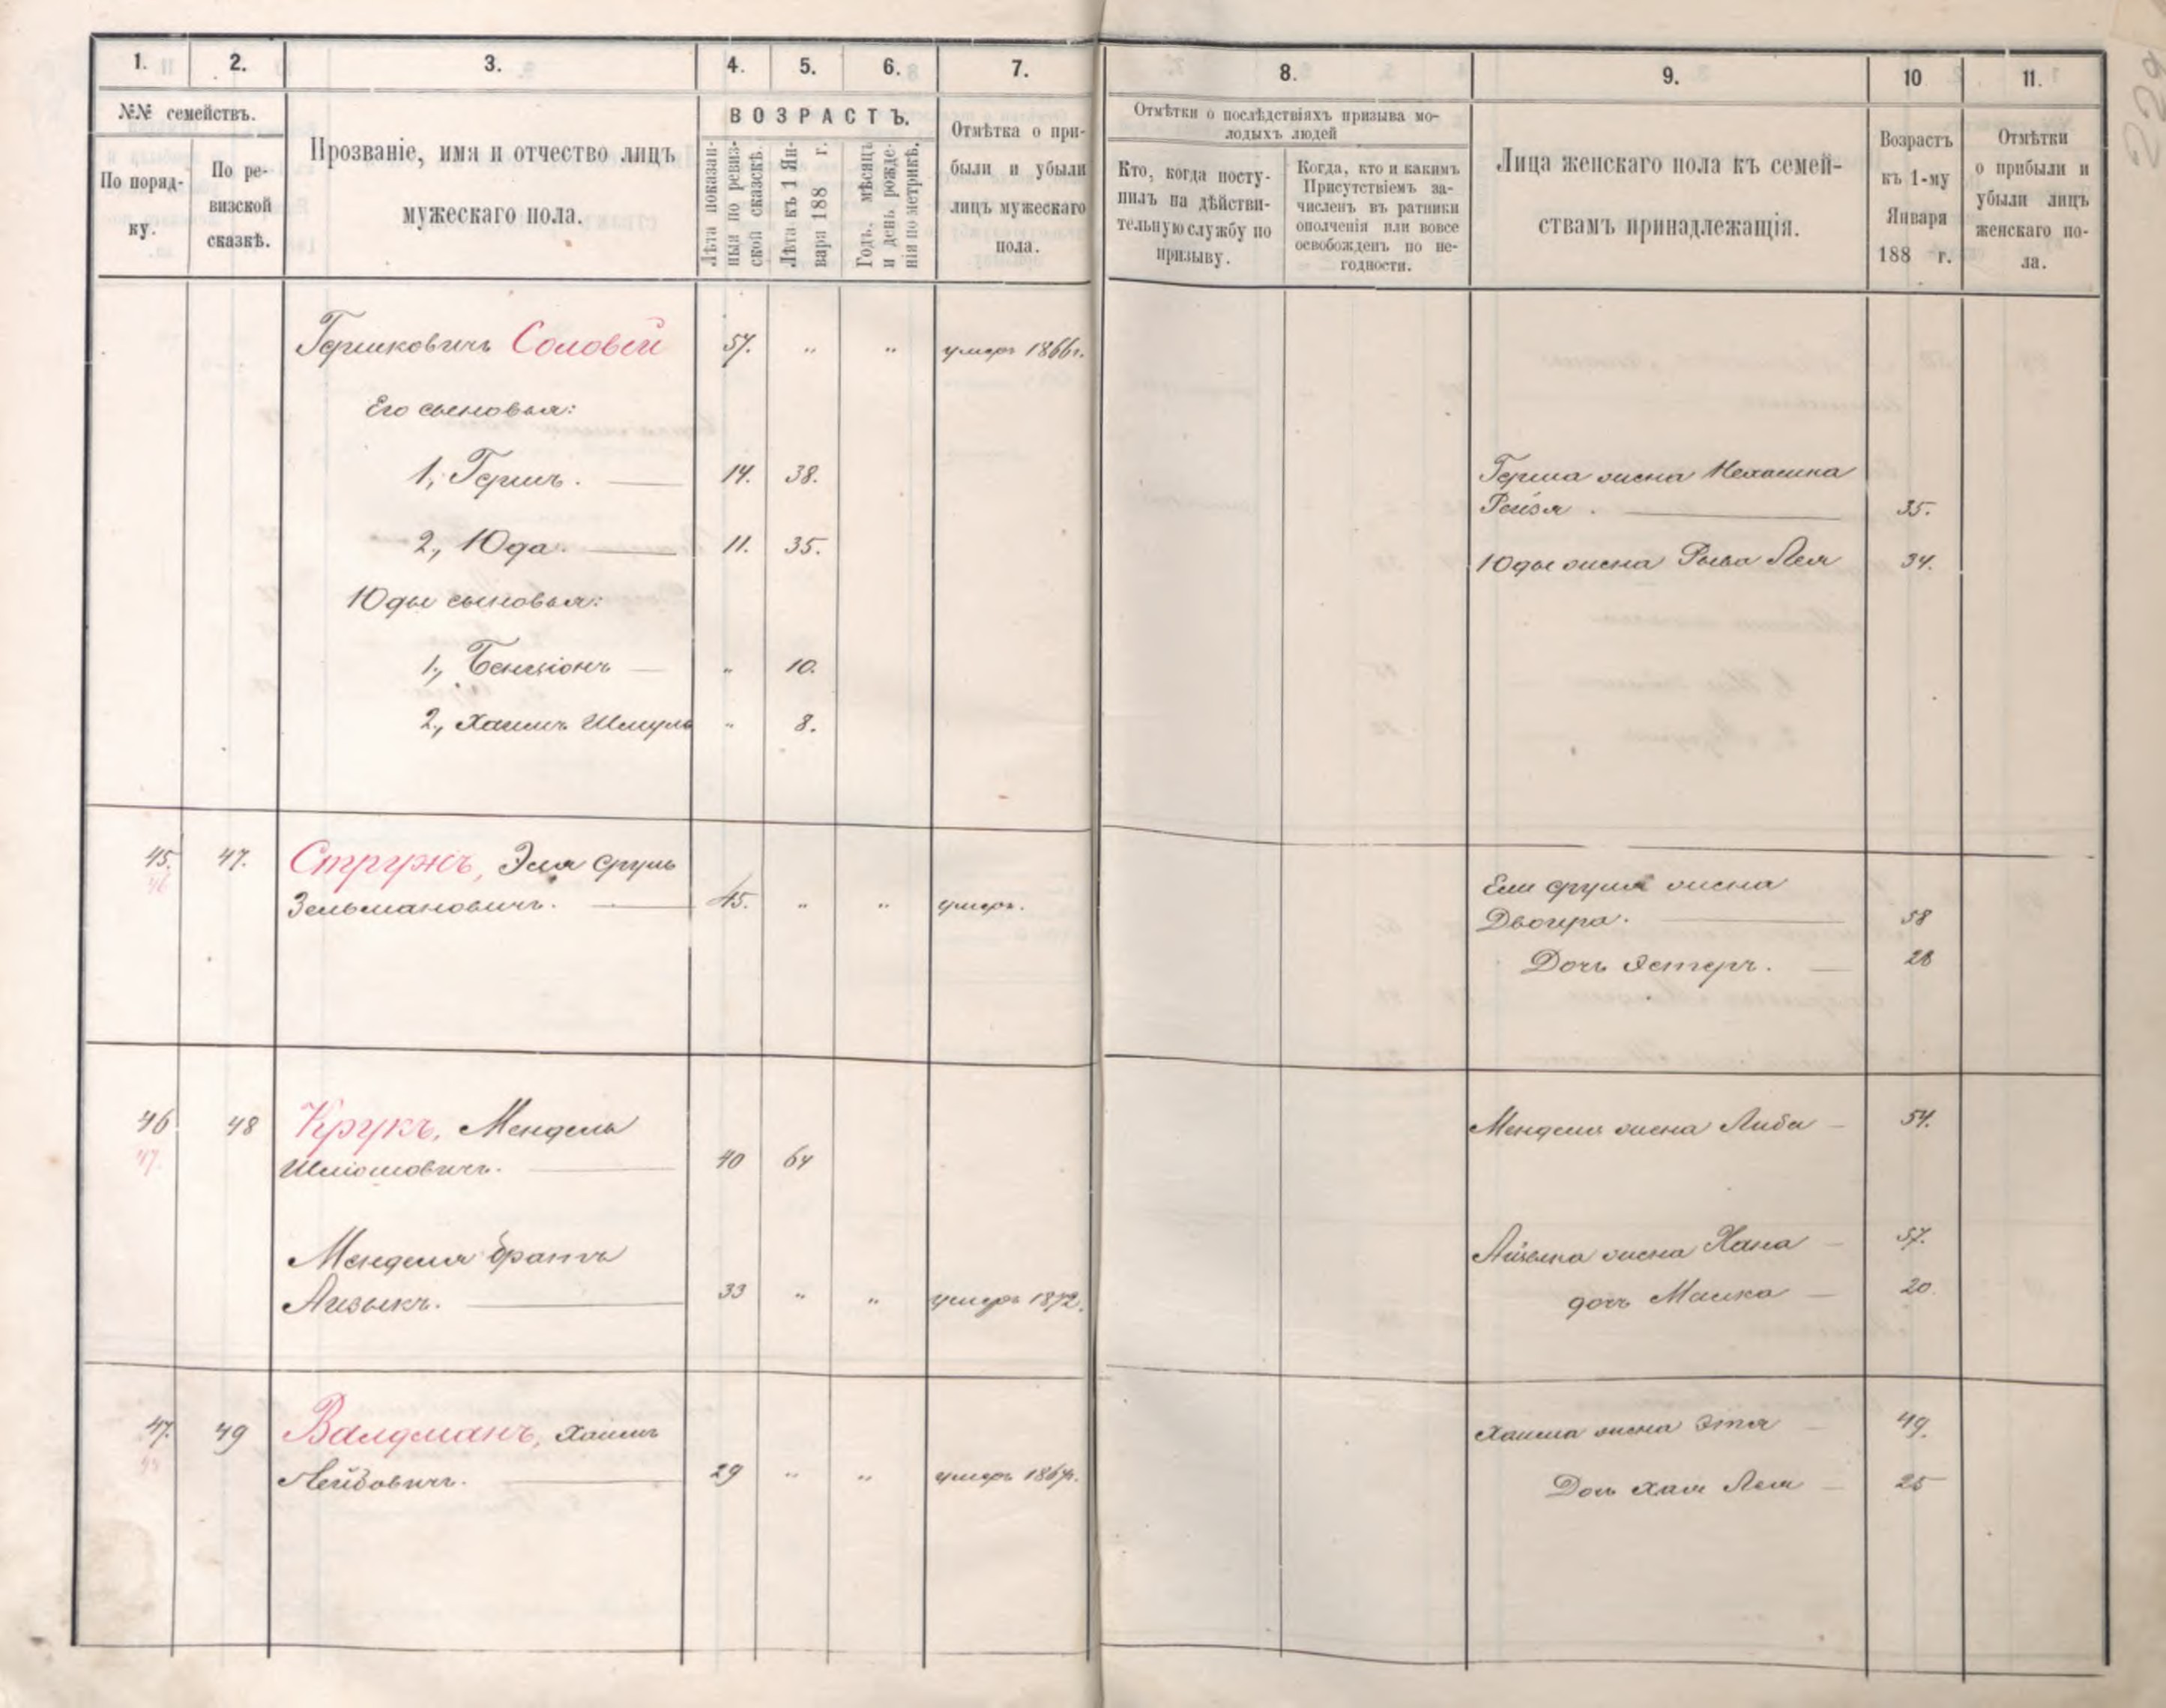 1. 2. 3. 4. 5. 6. 7. 8. 9. 10 11.
№№ семействъ.
По поряд-
ку.
По ре-
визской
сказкѣ.
Прозваніе, имя и отчество лицъ
мужескаго пола.
ВОЗРАСТЪ.
Лѣта показан-
ныя по ревиз-
ской сказкѣ.
Лѣта къ 1 Ян-
варя 188 г.
Годъ, мѣсяцъ
и день рожде-
нія по метрикѣ.
Отмѣтка о при-
были и убыли
лицъ мужескаго
пола.
Отмѣтки о послѣдствіяхъ призыва мо-
лодыхъ людей
Кто, когда посту-
пилъ на дѣйстви-
тельную службу по
призыву.
Когда, кто и какимъ
Присутствіемъ за-
численъ въ ратники
ополченія или вовсе
освобожденъ по не-
годности.
Лица женскаго пола къ семей-
ствамъ принадлежащія.
Возрастъ
къ 1-му
Января
188 г.
Отмѣтки
о прибыли и
убыли лицъ
женскаго по-
ла.
Гершковичъ Соловей 57. " " умеръ 1866г.
Его сыновья:
1, Гершъ. 14. 38.
Герша жена Нехашка
Рейзя. 35.
2, Юда. 11. 35.
Юды жена Рыва Лея 34.
Юды сыновья:
1, Бенціонъ " 10.
2, Хаимъ Шмуль " 8.
45. 47. Стружъ, Эля Сруль
46
Зельмановичъ. 45. " " умеръ.
Ели Сруля жена
Двойра. 58
Дочь Эстеръ. 28
46 48 Крукъ, Мендель
47.
Шліомовичъ. 40 64
Менделя жена Либа 54.
Менделя братъ
Айзыкъ. 33 " " умеръ 1872.
Айзыка жена Хана 57.
дочь Машка 20.
47. 49 Валдманъ, Хаимъ
Лейбовичъ. 29 " " умеръ 1867г.
Хаима жена Этя 49.
Дочь Хая Лея 25